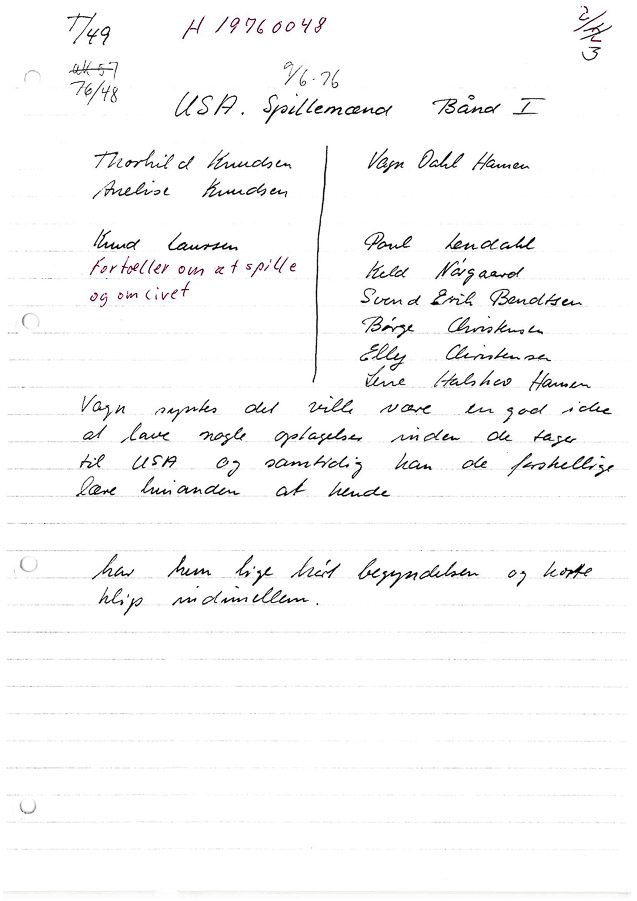 T/49
H 19760048
2/12
3
ak 57
76/48
9/6-76
USA. Spillemænd Bånd I
Thorkild Knudsen
Anelise Knudsen
Knud Laursen
Fortæller om at spille
og om livet
Vagn Dahl Hansen
Poul Lendahl
Keld Nørgaard
Svend Erik Bendtsen
Børge Christensen
Elly Christensen
Lene Halskov Hansen
Vagn syntes det ville være en god ide
at lave nogle optagelser inden de tager
til USA og samtidig kan de forskellige
lære hinanden at kende
har kun lige hørt begyndelsen og korte
klip indimellem.